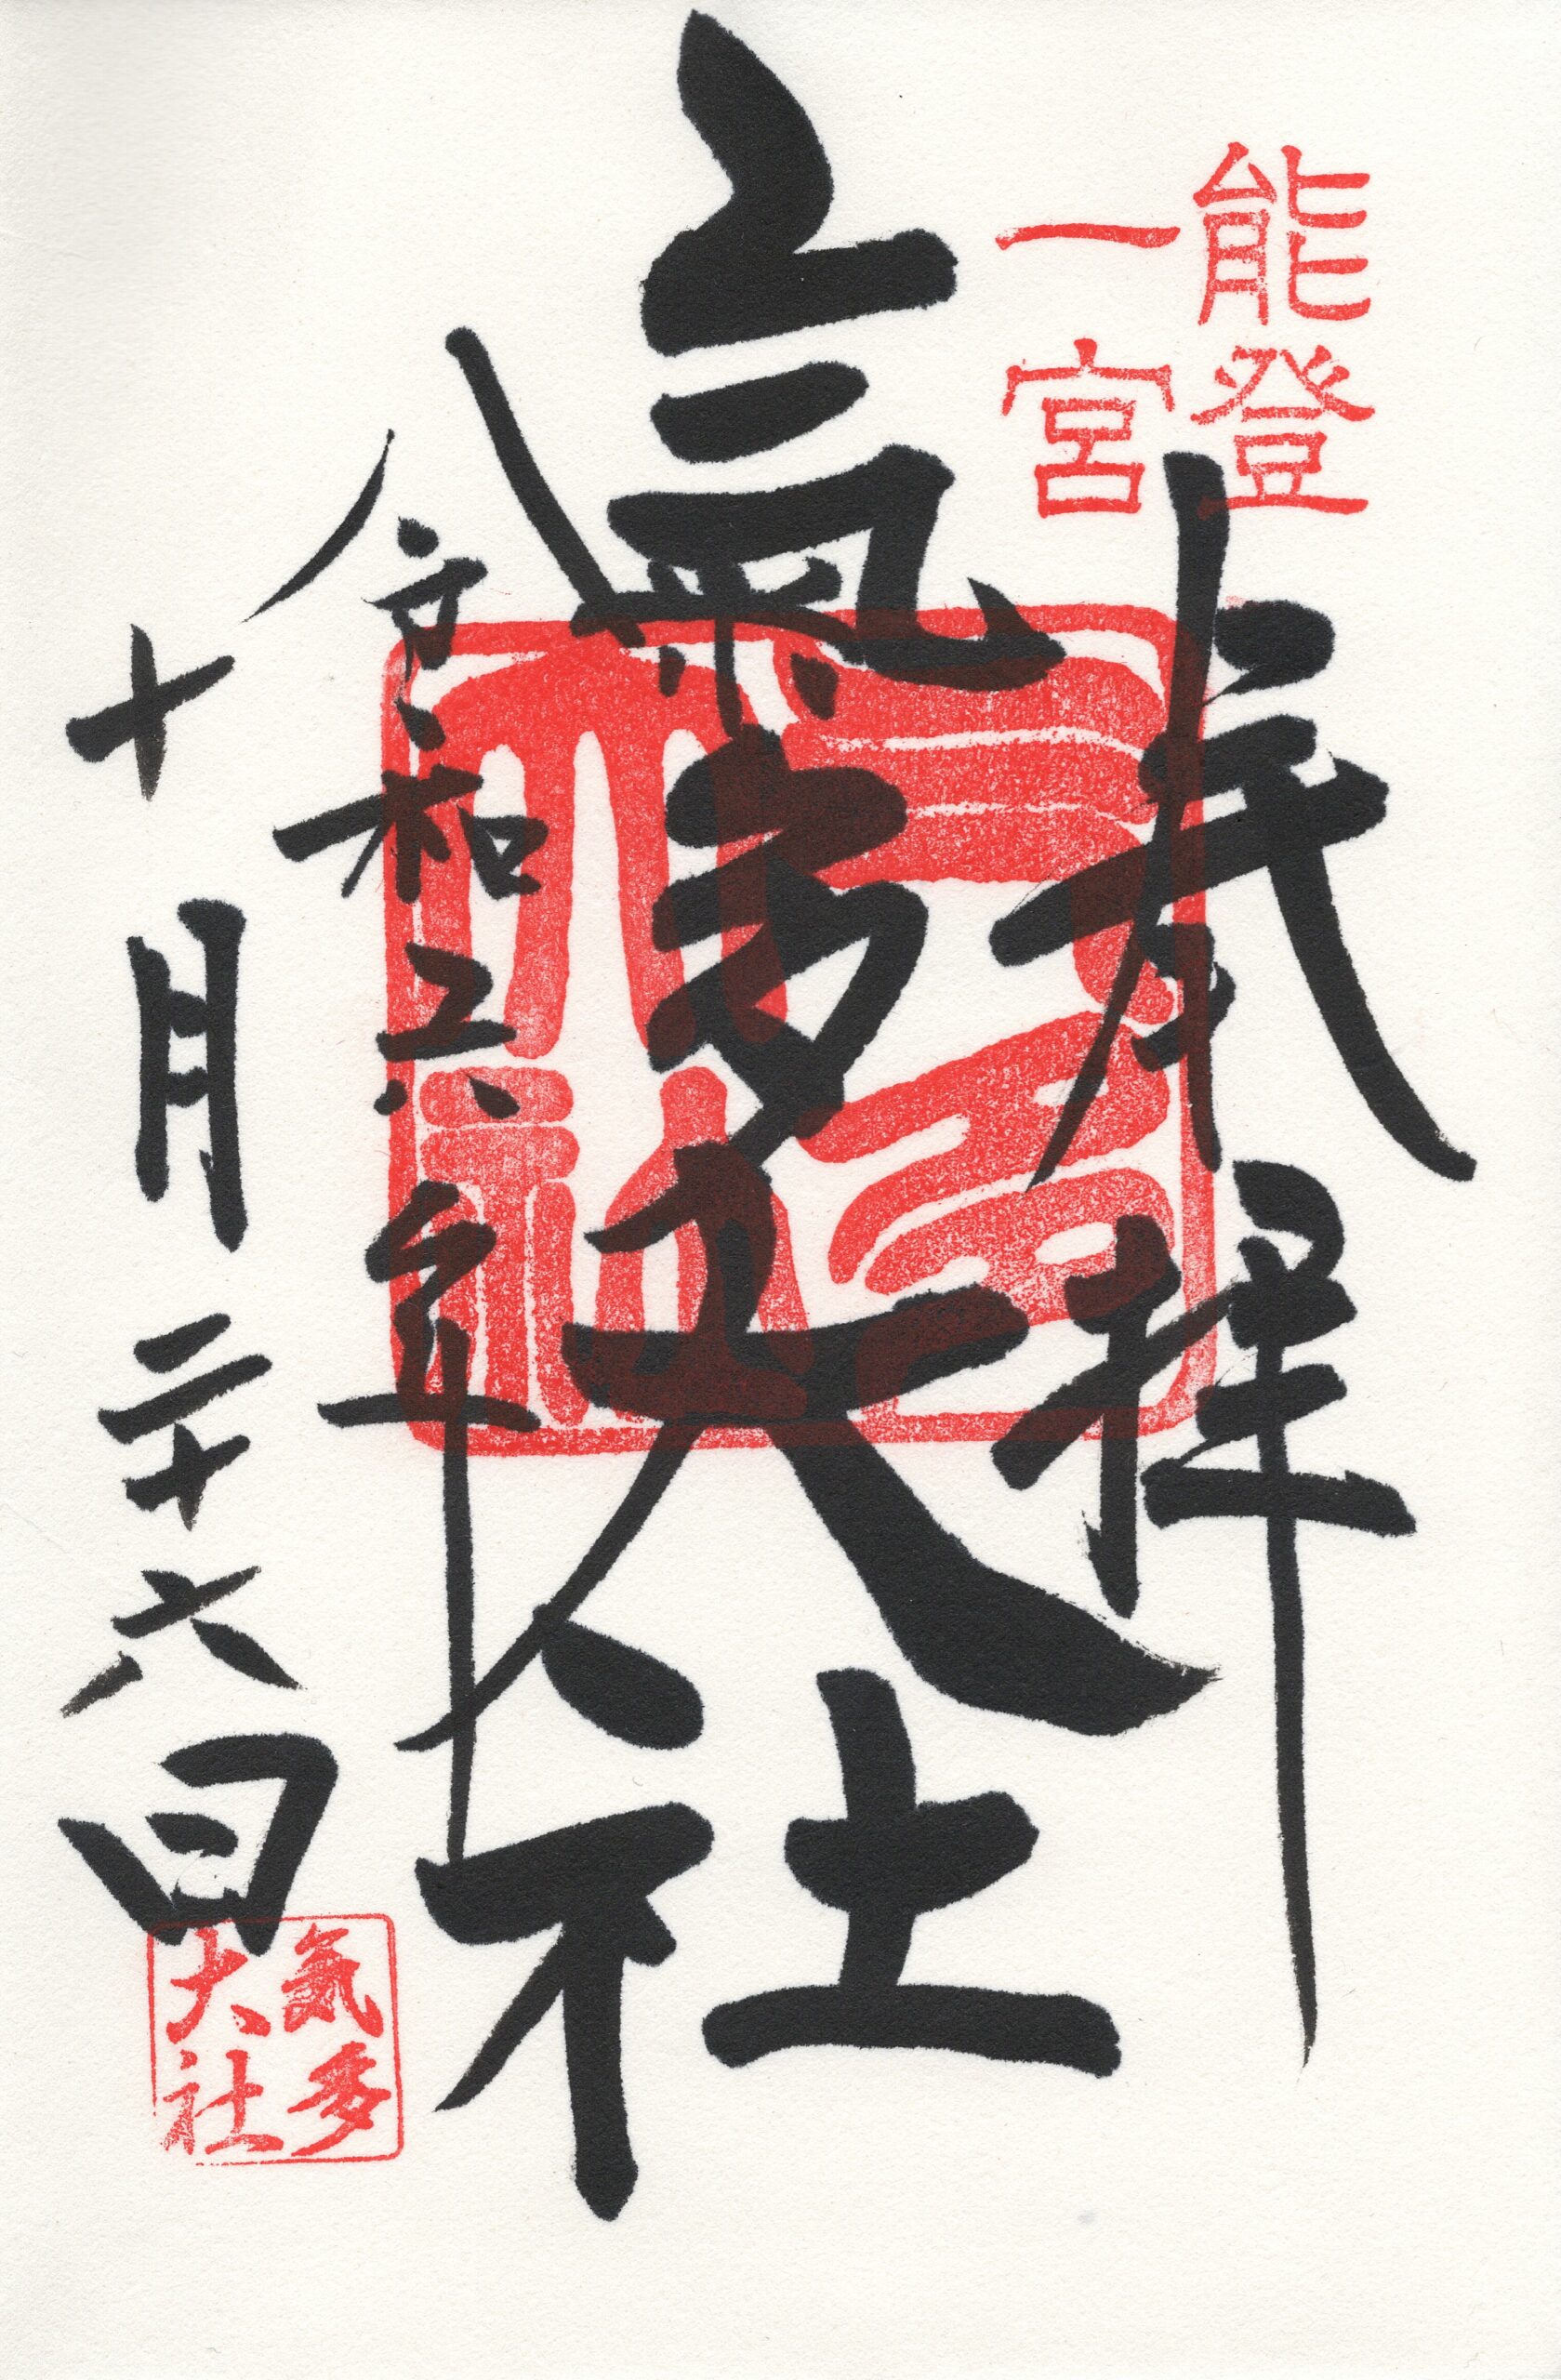 能登
一宮
奉拝
氣多大社
令和六年
十月二十六日
気多
大社
氣多
大社